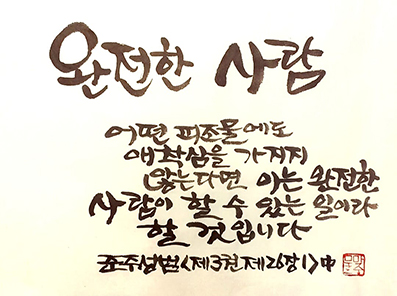 완전한 사람
어떤 피조물에도
애착심을 가지지
않는다면 이는 완전한
사람이 할 수 있는 일이라
할 것입니다
준주성범<제3권 제26장1>中